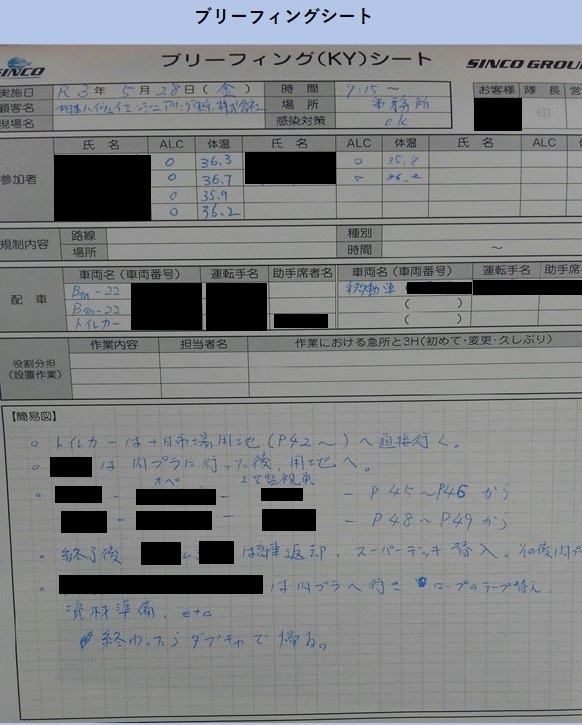 ブリーフィングシート
SINCO
ブリーフィング(KY)シート
SINCO GROUP
実施日 R3年 5月 28日(金) 時間 7:15 ~
顧客名 場所 事務所
現場名 感染対策 ok
お客様 隊長
印
参加者
氏名 ALC 体温 氏名 ALC 体温 氏名 ALC 体温
0 36.3 0
0 36.7
0 35.9
0 36.2
規制内容 路線 種別
場所 時間 ~
配車 車両名(車両番号) 運転手名 助手席者名 車両名(車両番号) 運転手名 助手
-22 ( )
-22 ( )
トイレカー ( )
役割分担
(設置作業)
作業内容 担当者名 作業における急所と3H(初めて・変更・久しぶり)
【簡易図】
○ トイレカーは十日市場用地(P42~)へ直接行く。
○ は内プラに行った後、用地へ。
オペ 上空監視員
○ - - - P45~P46 から
- - - P48~P49 から
○ 終了後 は 返却、スーパーデッキ 替入。その後内プ
○ は内プラへ行き ロープのテープ替え、
資材準備、etc
終わったらダブキャで帰る。